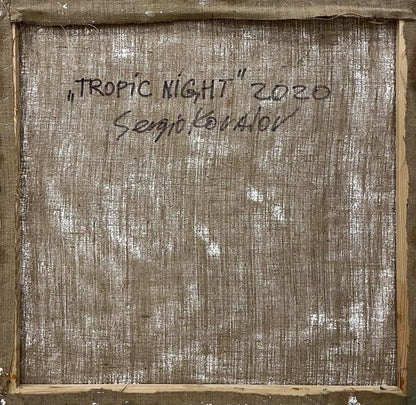 „TROPiC NiGHT" 2020
Sergio Kovalov